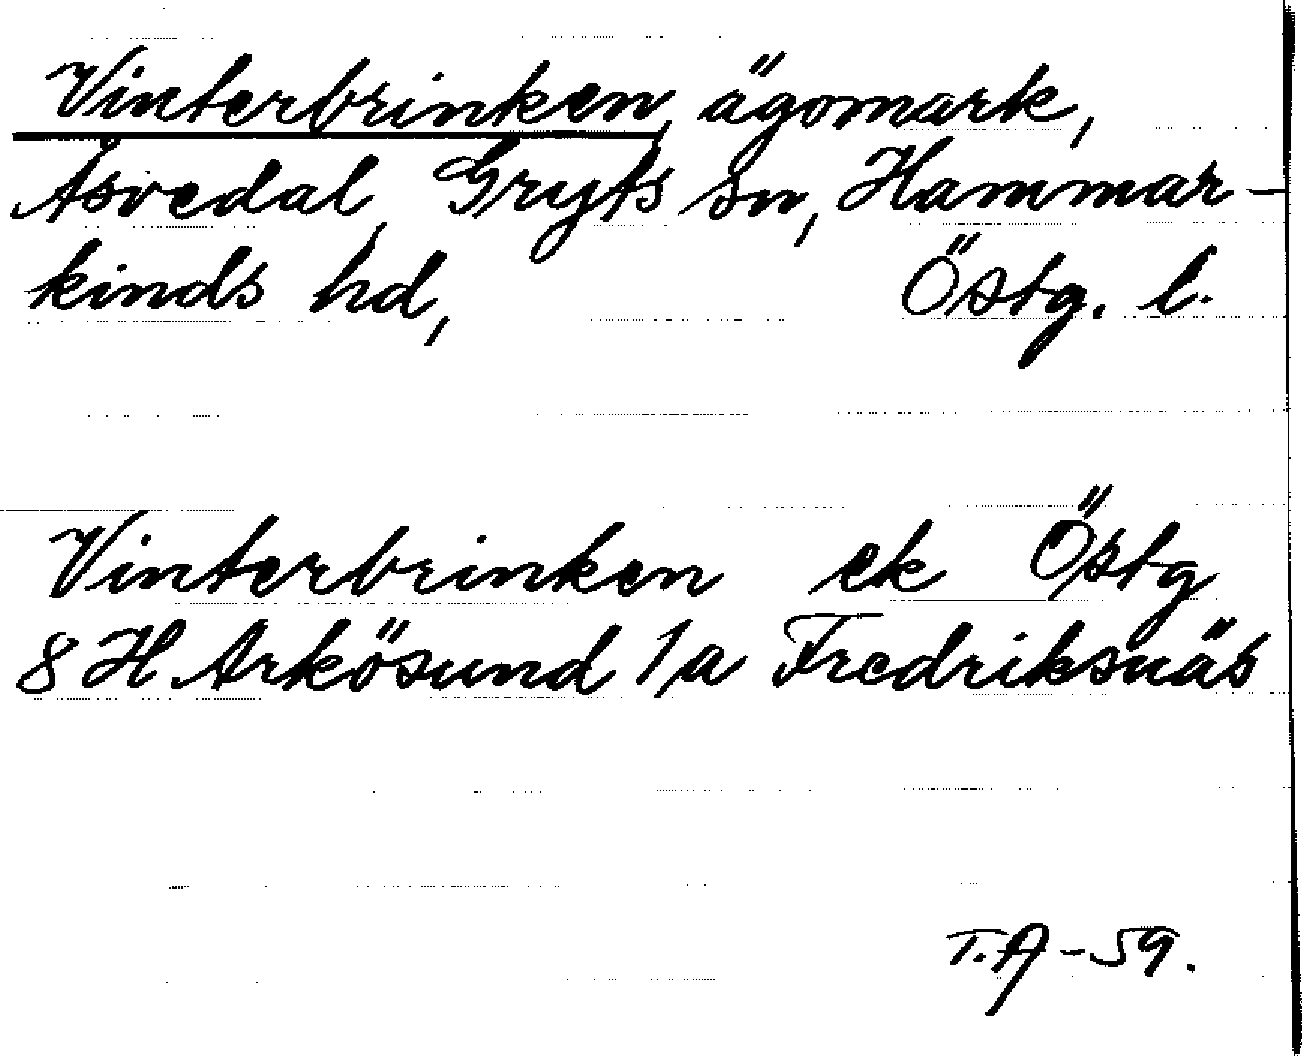 Vinterbrinken, ägomark,
Åsvedal, Gryts sn, Hammar-
kinds hd, Östg. l.
Vinterbrinken ek Östg
8 H Arkösund 1/a Fredriksnäs
T.A-59.